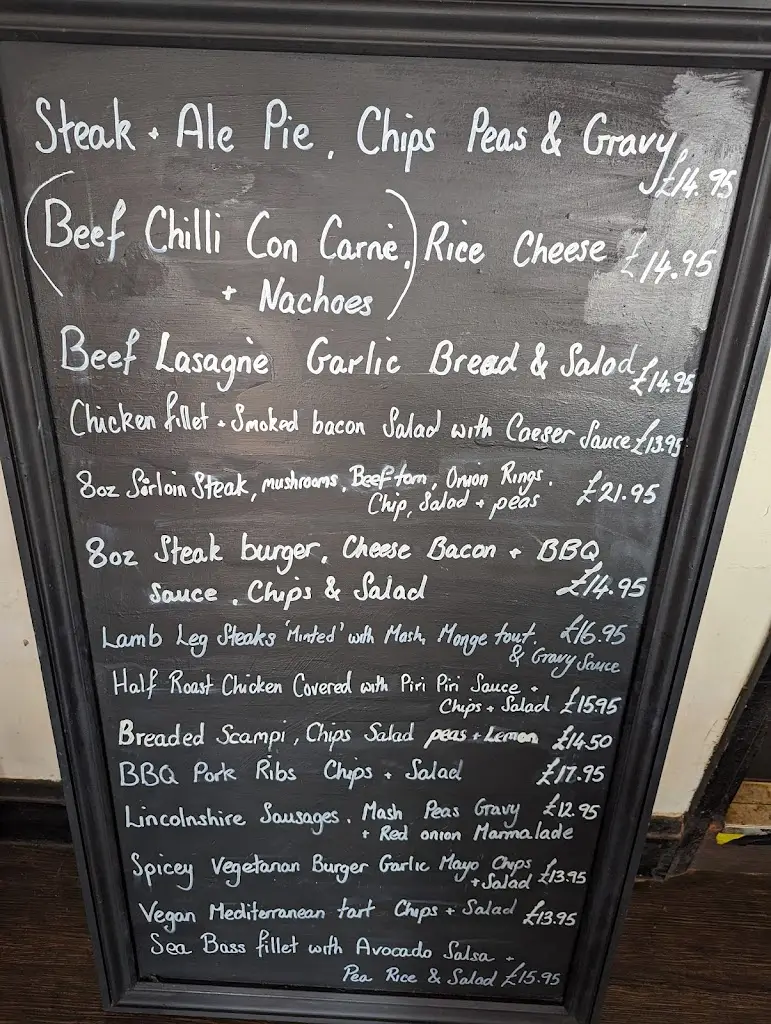 Steak + Ale Pie, Chips Peas & Gravy £14.95
(Beef Chilli Con Carne,) Rice Cheese £14.95
+ Nachoes
Beef Lasagne Garlic Bread & Salad £14.95
Chicken fillet + Smoked bacon Salad with Caeser Sauce £13.95
8oz Sirloin Steak, mushrooms, Beef tom, Onion Rings, £21.95
Chip, Salad + peas
8oz Steak burger, Cheese Bacon + BBQ
Sauce, Chips & Salad £14.95
Lamb Leg Steaks 'Minted' with Mash, Monge tout. £16.95
& Gravy Sauce
Half Roast Chicken Covered with Piri Piri Sauce +
Chips + Salad £15.95
Breaded Scampi, Chips Salad peas + Lemon £14.50
BBQ Pork Ribs Chips + Salad £17.95
Lincolnshire Sausages, Mash Peas Gravy £12.95
+ Red onion Marmalade
Spicey Vegetarian Burger Garlic Mayo Chips
+ Salad £13.95
Vegan Mediterranean tart Chips + Salad £13.95
Sea Bass fillet with Avocado Salsa +
Pea Rice & Salad £15.95